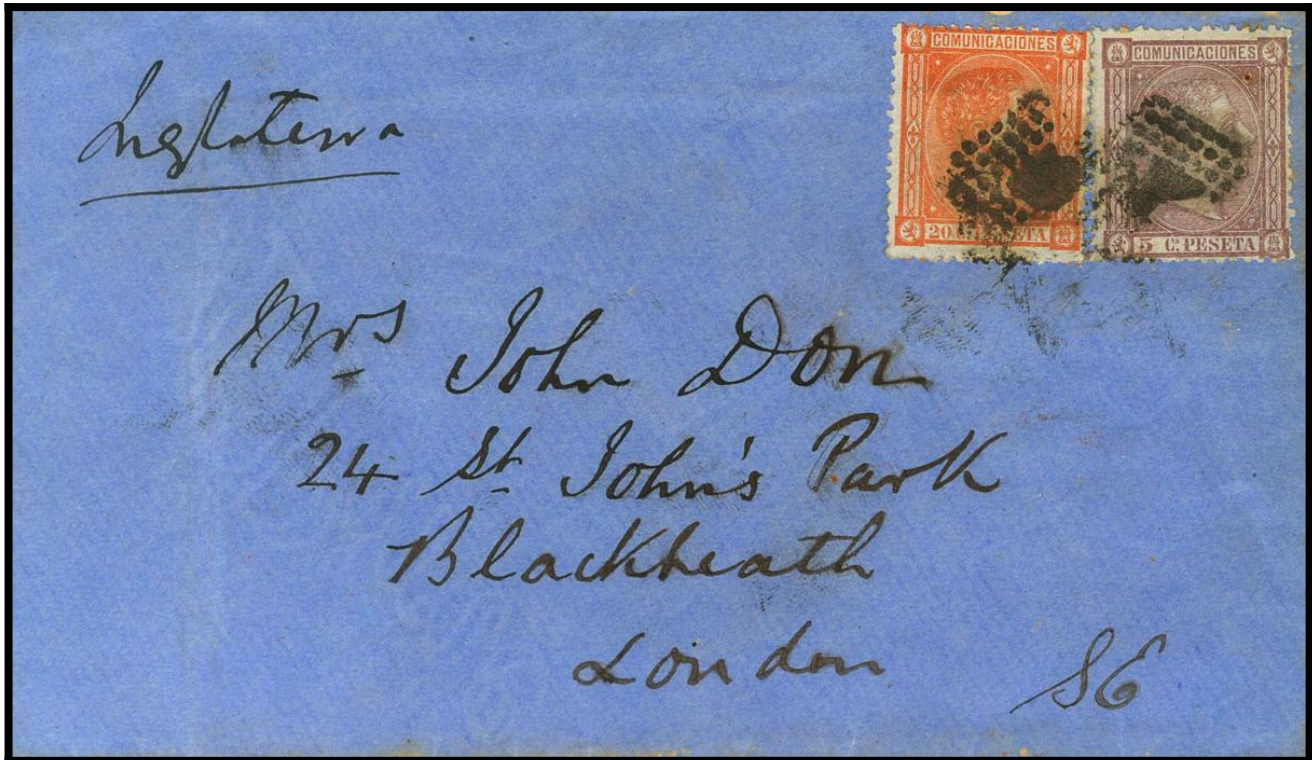 Inglaterra
COMUNICACIONES
COMUNICACIONES
PESETA
5 C. PESETA
Mrs John Don
24 St John's Park
Blackheath
London SE